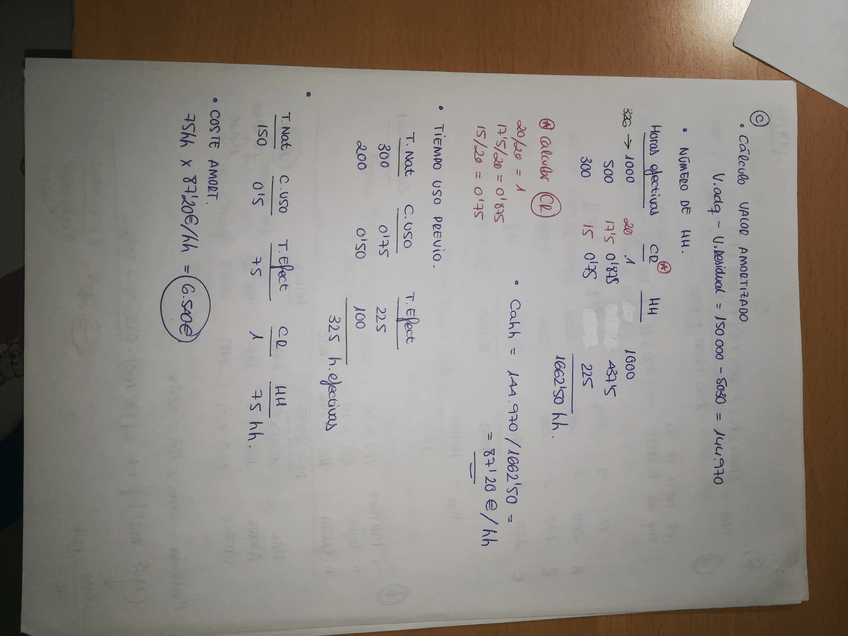 C
• CÁLCULO VALOR AMORTIZADO
V.adq - V.residual = 150 000 - 5030 = 144.970
• NÚMERO DE HH.
Horas efectivas CR * HH
325 → 1000 20 1 1000
500 17'5 0'875 437'5
300 15 0'75 225
1662'50 hh.
* Calcular CR
20/20 = 1
17'5/20 = 0'875
15/20 = 0'75
• Cahh = 144.970 / 1662'50 =
= 87'20 € / hh
• TIEMPO USO PREVIO.
T. Nat C. USO T. Efect
300 0'75 225
200 0'50 100
325 h. efectivas
•
T. Nat C. USO T. Efect CR HH
150 0'5 75 1 75 hh.
• COSTE AMORT.
75hh x 87'20€/hh = 6.540€